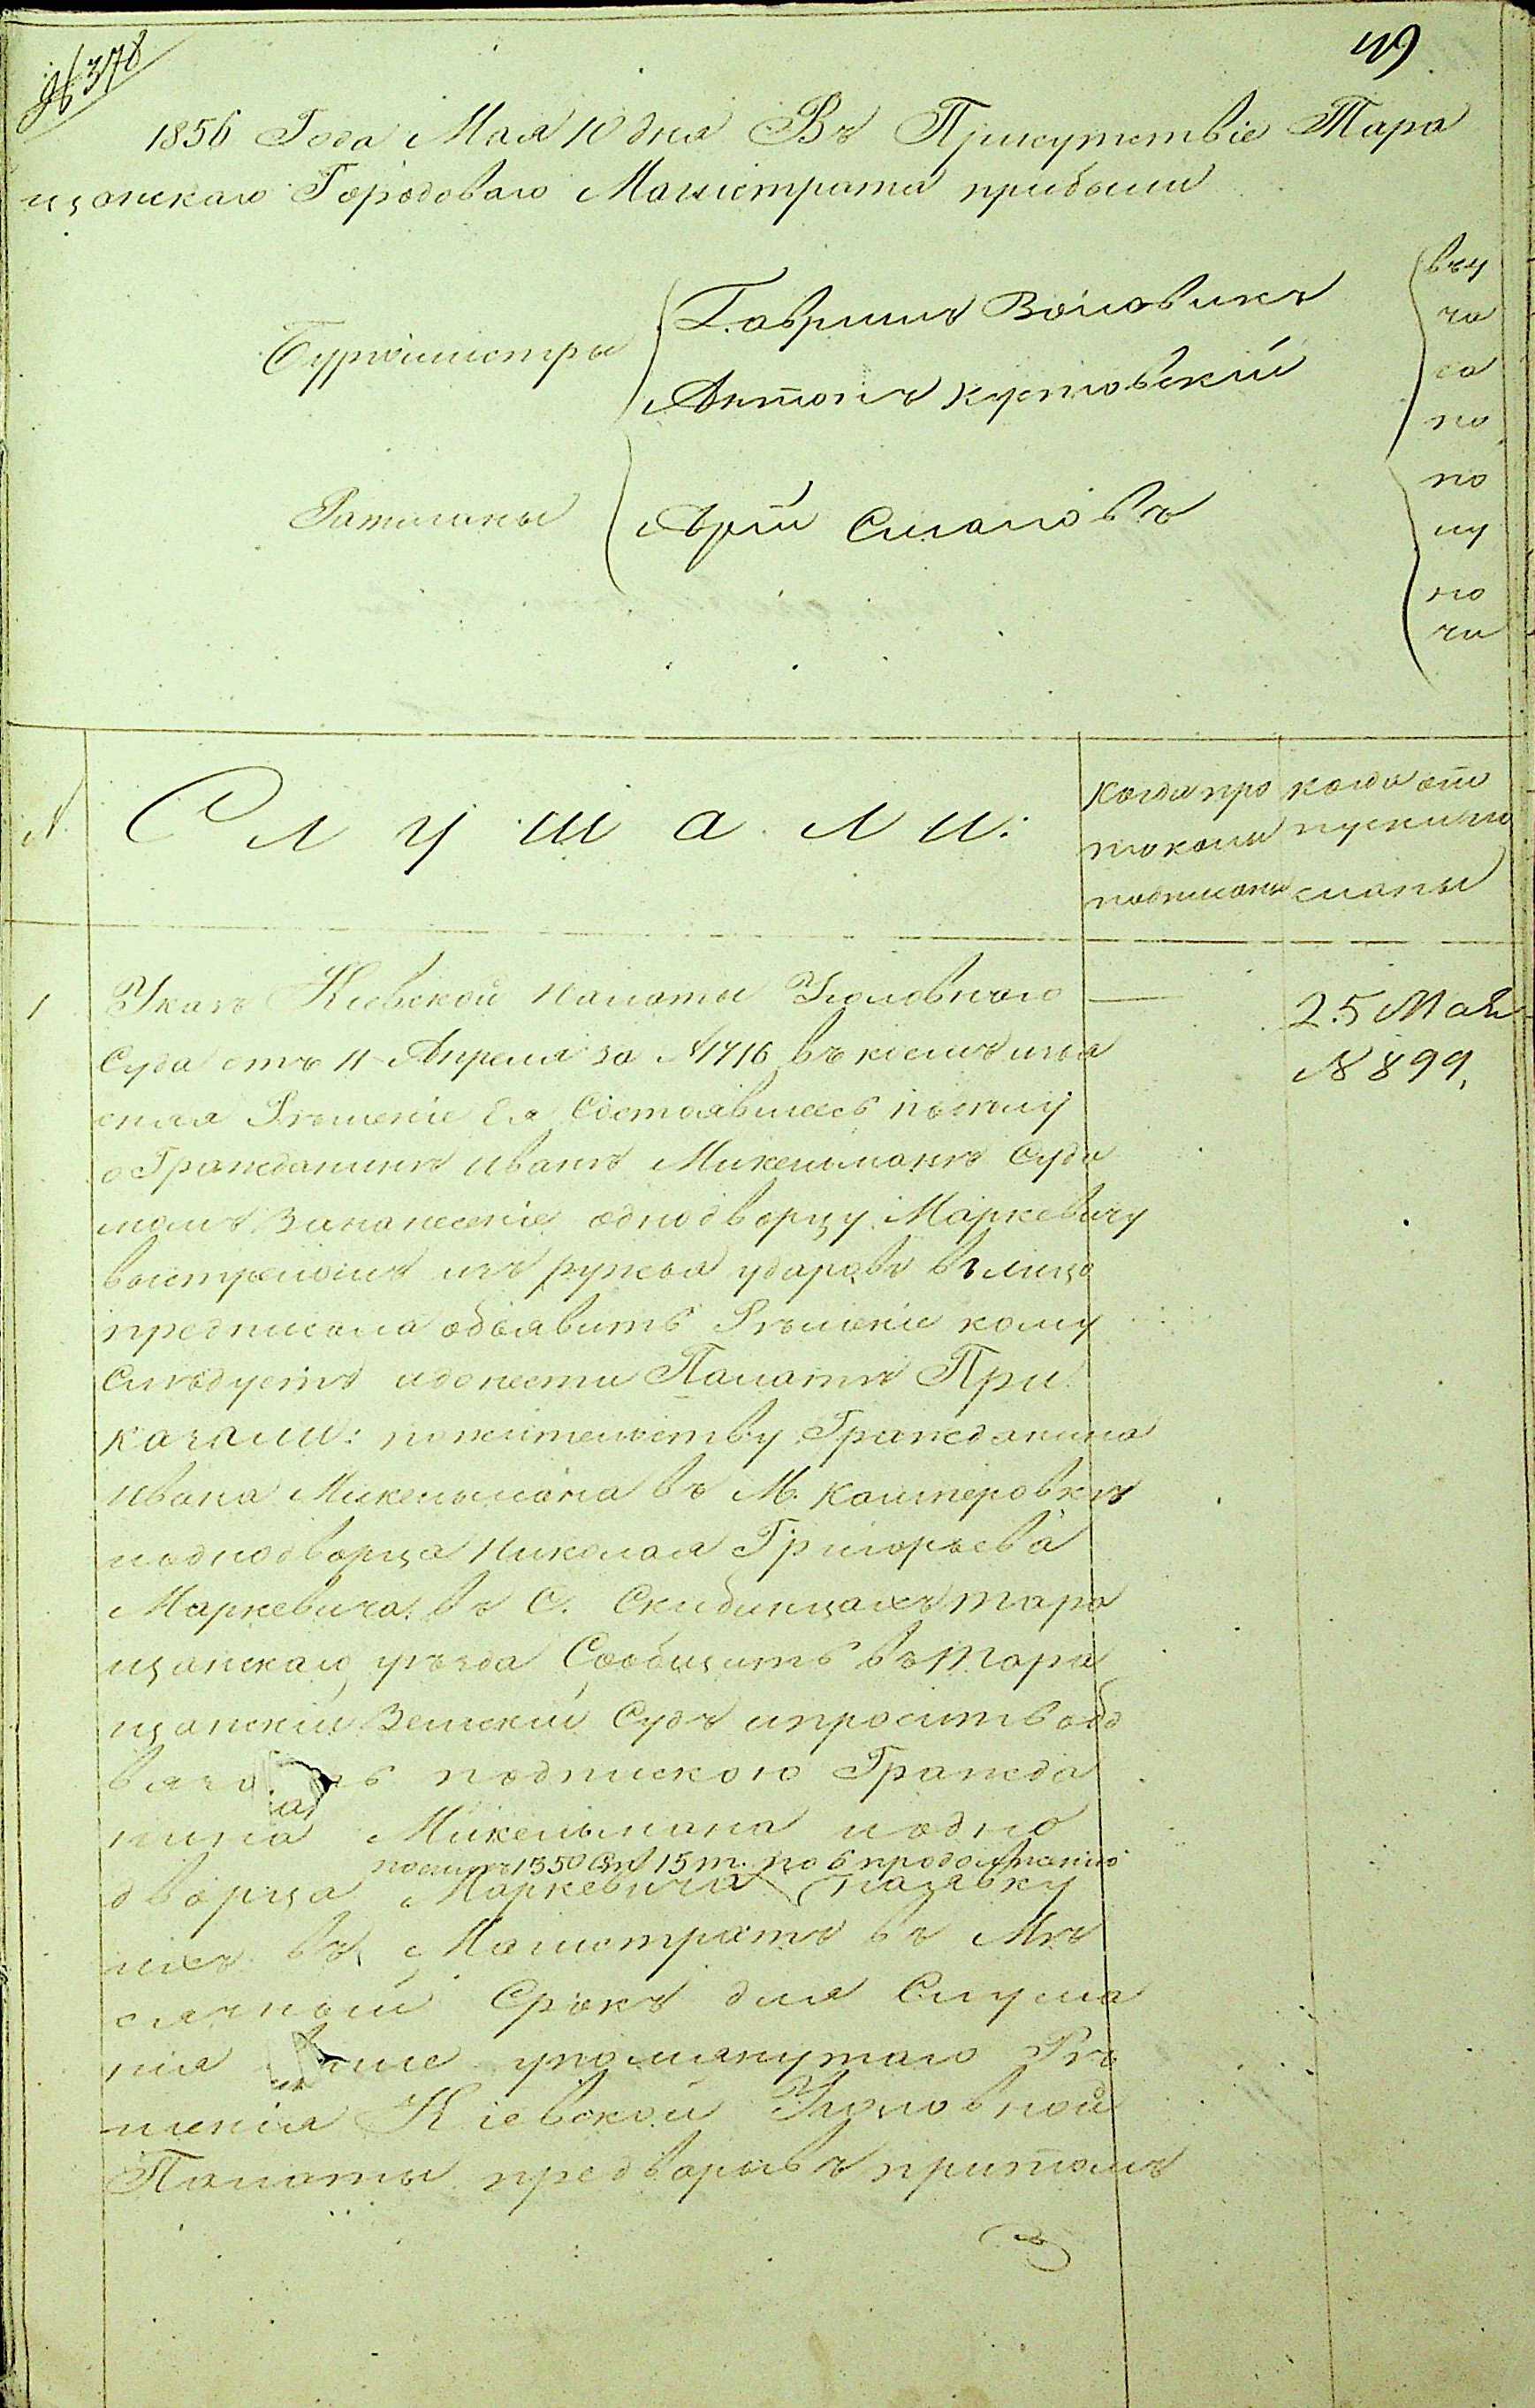 № 378
1856 Года Мая 10 дня Въ Присутствіе Тара
щанскаго Городоваго Магистрата прибыли
Бургомистры
Гаврилъ Воловикъ
Антонъ Кустовскій
въ 4
ча
са
по
Ратманы
Арій Смаловъ
по
лу
но
чи
№
Слушали:
Когда про
токолы
подписаны
когда от
пуски по
сланы
1
Указъ Кіевской Палаты Уголовнаго
Суда отъ 11 Апреля за №1716 въ коемъ изъя
сняя Рѣшеніе Ея Состоявшееся по делу
о Гражданинѣ Иванѣ Микельманѣ Суди
момъ За нанесеніе однодворцу Маркевичу
выстреломъ изъ ружья ударовъ въ лицо
предписала объявить Рѣшеніе кому
Слѣдуетъ и донести Палатѣ При
казали: по жительству Гражданина
Ивана Микельмана въ М. Кашперовкѣ
и однодворца Николая Григорьева
Маркевича въ С. Скибинцахъ Тара
щанскаго уѣзда Сообщить въ Тара
щанскій Земскій Судъ и просить обо
вязать подпискою Гражда
нина Микельмана и одно
по силѣ 1350 ст 15 т. по 6 продолженію
дворца Маркевича на явку
ихъ въ Магистратъ въ Мѣ
сячный Срокъ для Слуша
нія выше упомянутаго Рѣ
шенія Кіевской Уголовной
Палаты предваривъ притомъ